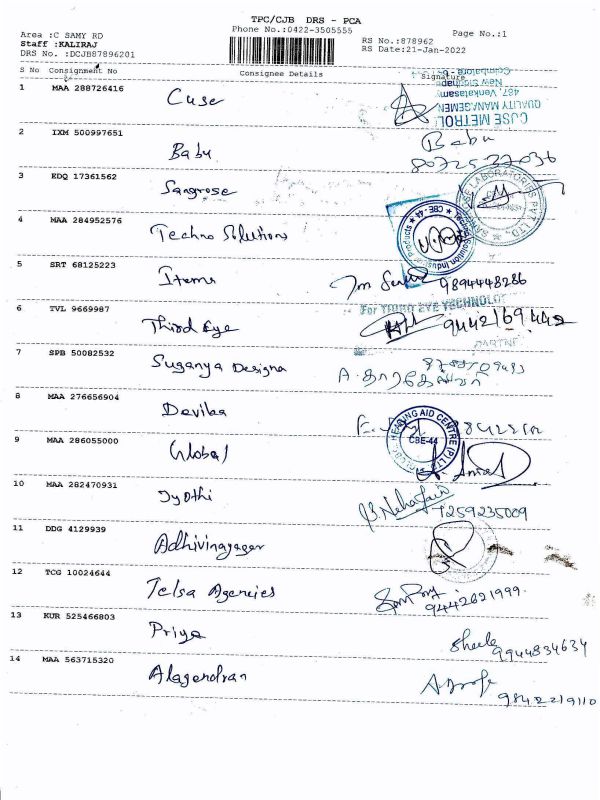 TPC/CJB DRS - PCA
Phone No.:0422-3505555
Page No.:1
Area :C SAMY RD
Staff :KALIRAJ
DRS No. :DCJB87896201
RS No.:878962
RS Date:21-Jan-2022
S No Consignment No Consignee Details Signature
Coimbatore - 6
New Sidhapu
487, Venkatasamy
QUALITY MANAGEMEN
CUSE METROL
1 MAA 288726416 Cuse
2 IXM 500997651 Babu Babu
3 EDQ 17361562 Sangrose
LABORATORIES PVT. LTD.
4 MAA 284952576 Techno Solutions
CBE-44
5 SRT 68125223 Items 9894448286
For THIRD EYE TECHNOLO
6 TVL 9669987 Third Eye 9442169442
PARTNE
7 SPB 50082532 Suganya Designa
8 MAA 276656904 Devika
HEARING AID CENTRE (P) LTD
CBE-44
9 MAA 286055000 Global
10 MAA 282470931 Jyothi
7259235009
11 DDG 4129939 Adhivinayagar
12 TCG 10024644 Telsa Agencies
9442621999
13 KUR 525466803 Priya
9944834634
14 MAA 563715320 Alagendran
9842219110